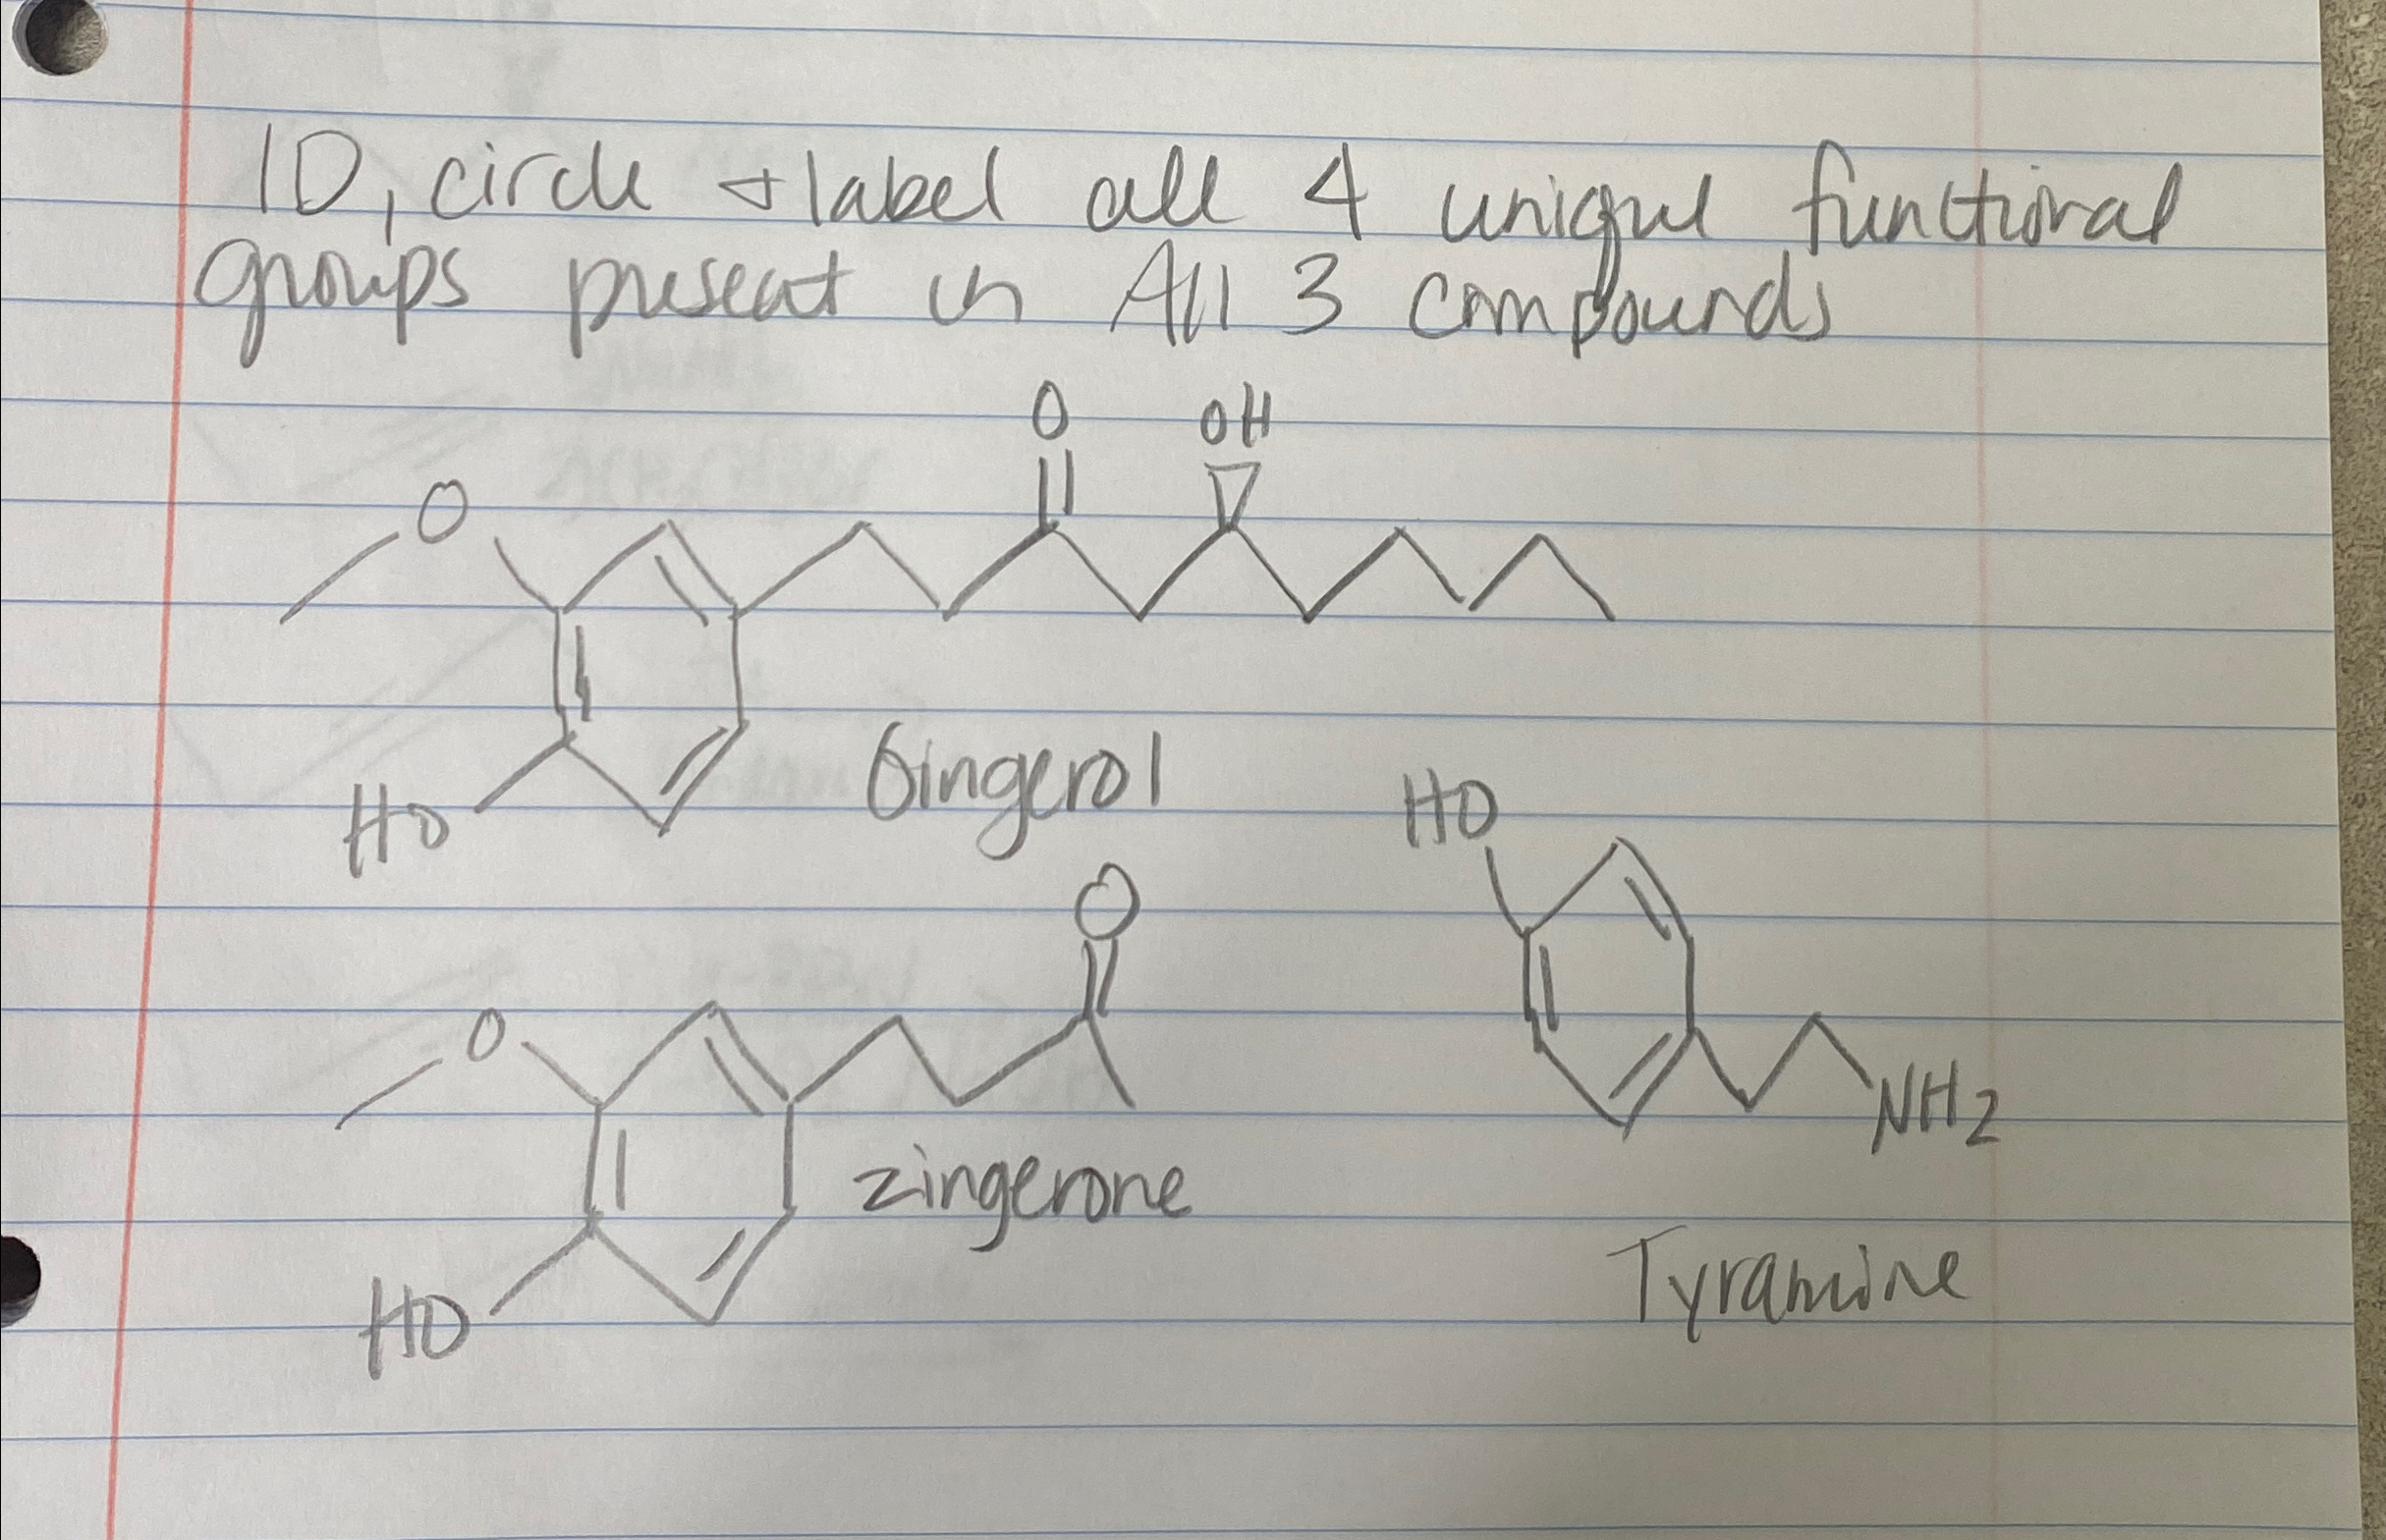 ID, circle + label all 4 unique functional
groups present in All 3 compounds
O OH
O
HO Gingerol
HO
O
O
NH2
zingerone
HO Tyramine